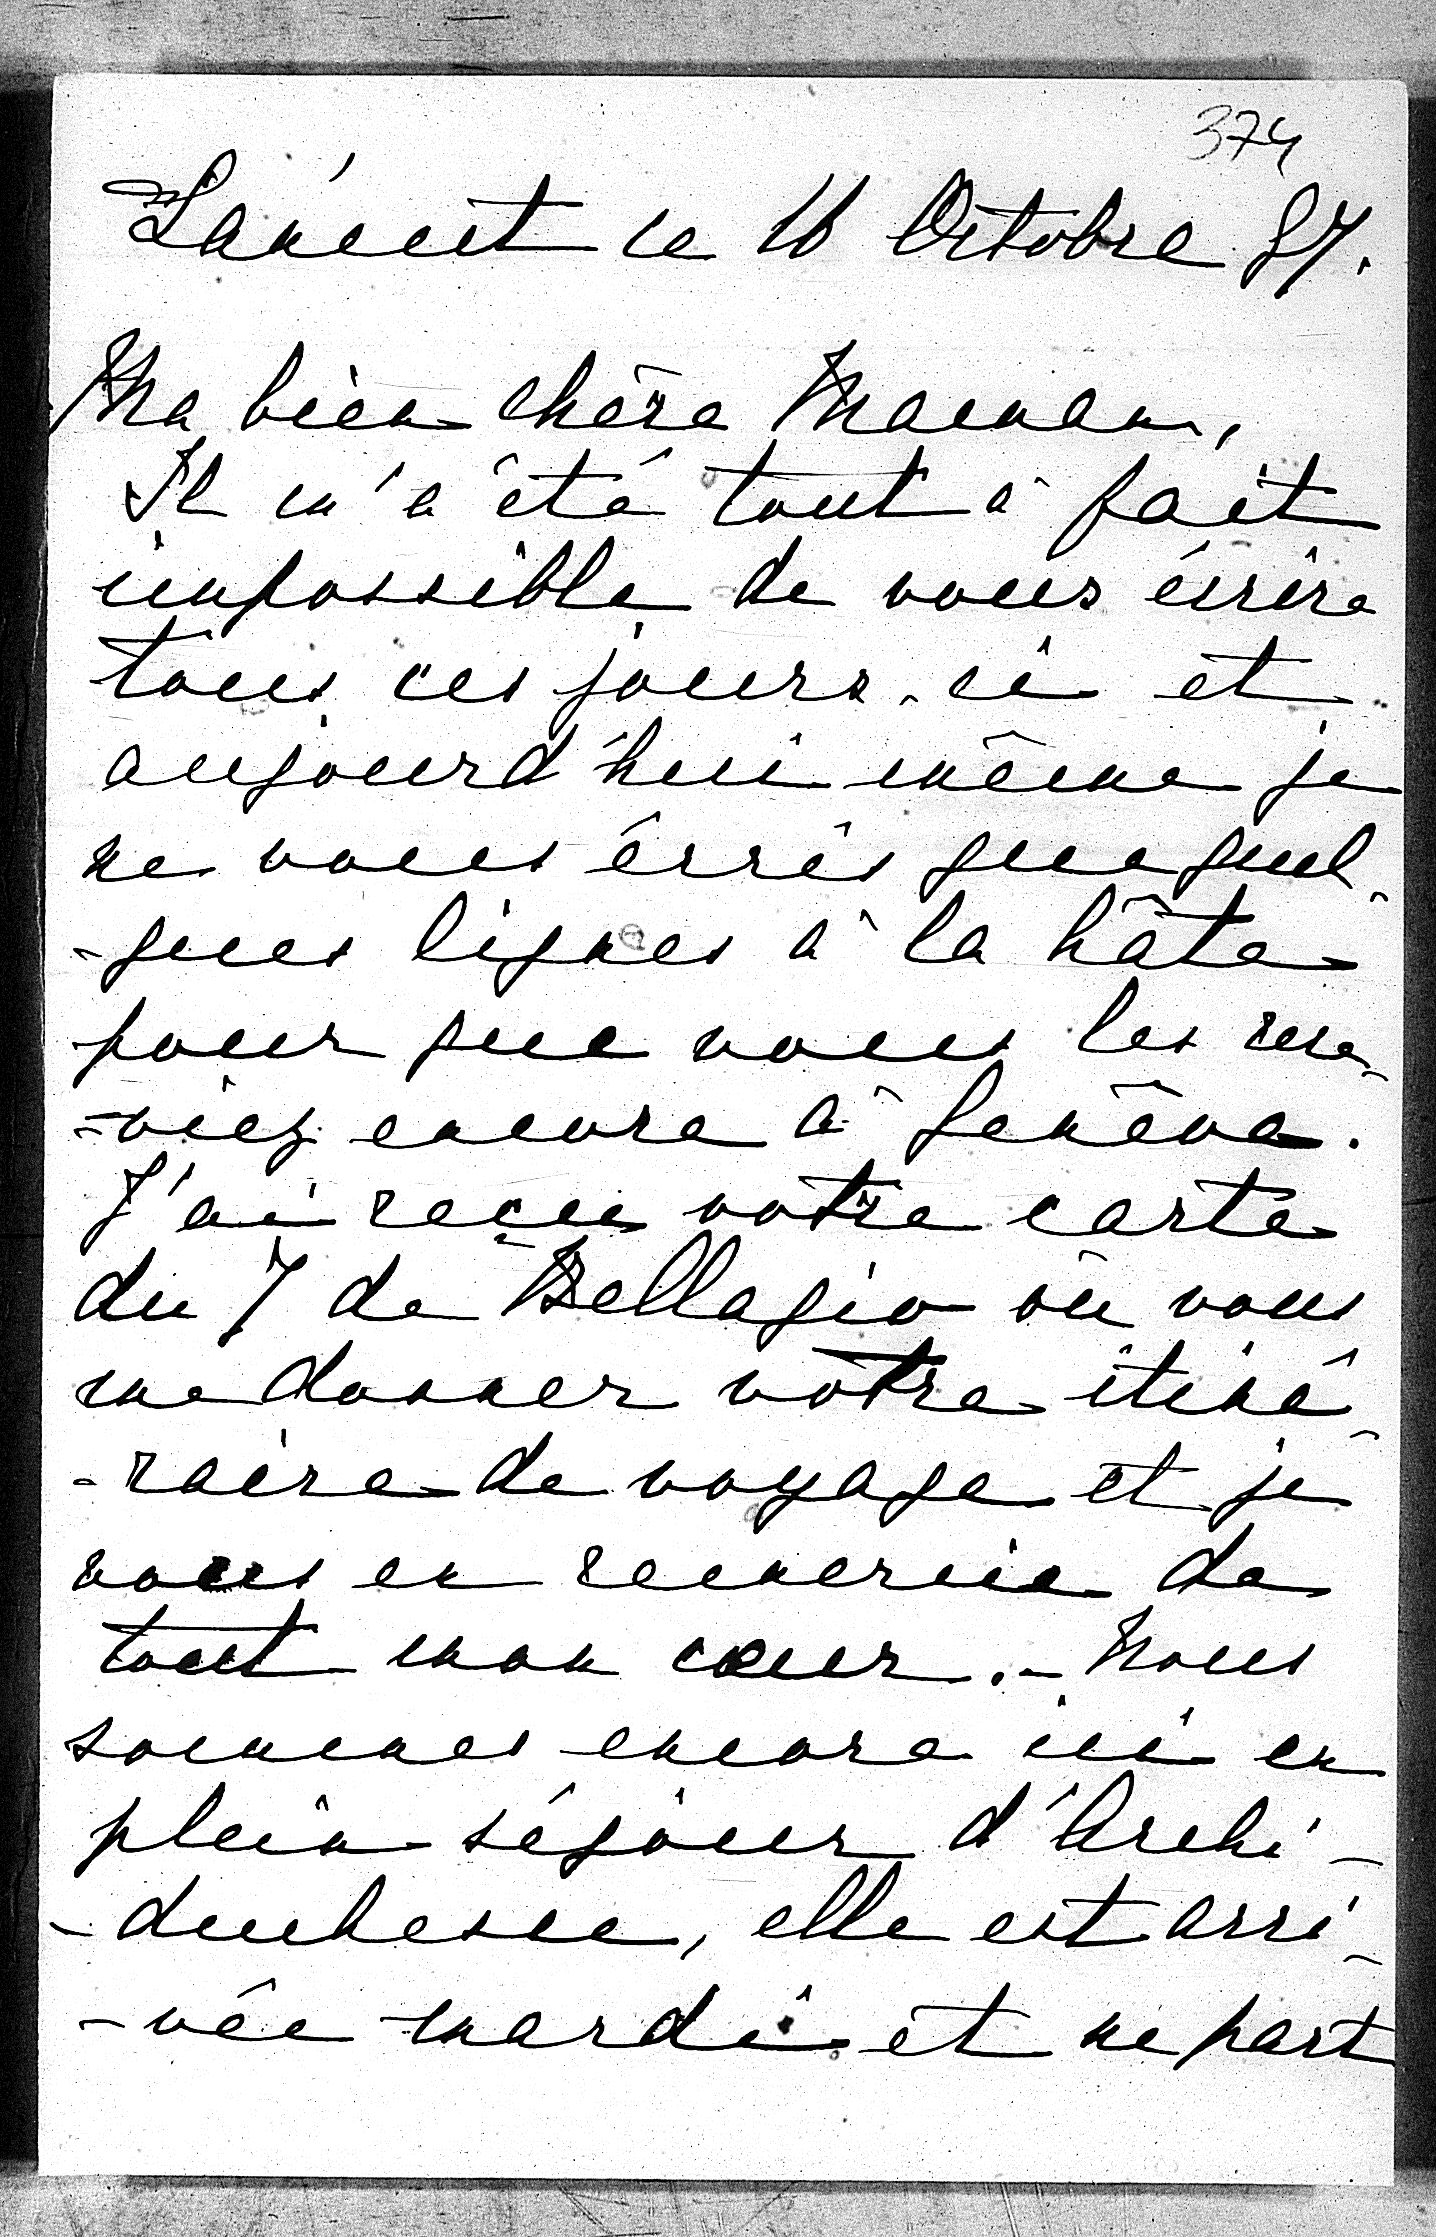 374
Láncut ce 16 Octobre 87.
Ma bien chère Maman,
Il m'a été tout à fait
impossible de vous écrire
tous ces jours-ci et
aujourd'hui même je
ne vous écris que quel-
-ques lignes à la hâte
pour que vous les rece-
-viez encore à Genève.
J'ai reçu votre carte
du 7 de Bellagio où vous
me donner votre itiné-
-raire de voyage et je
vous en remercie de
tout mon cœur. - Nous
sommes encore ici en
plein séjour d'Archi-
-duchesse, elle est arri-
-vée mardi et ne part